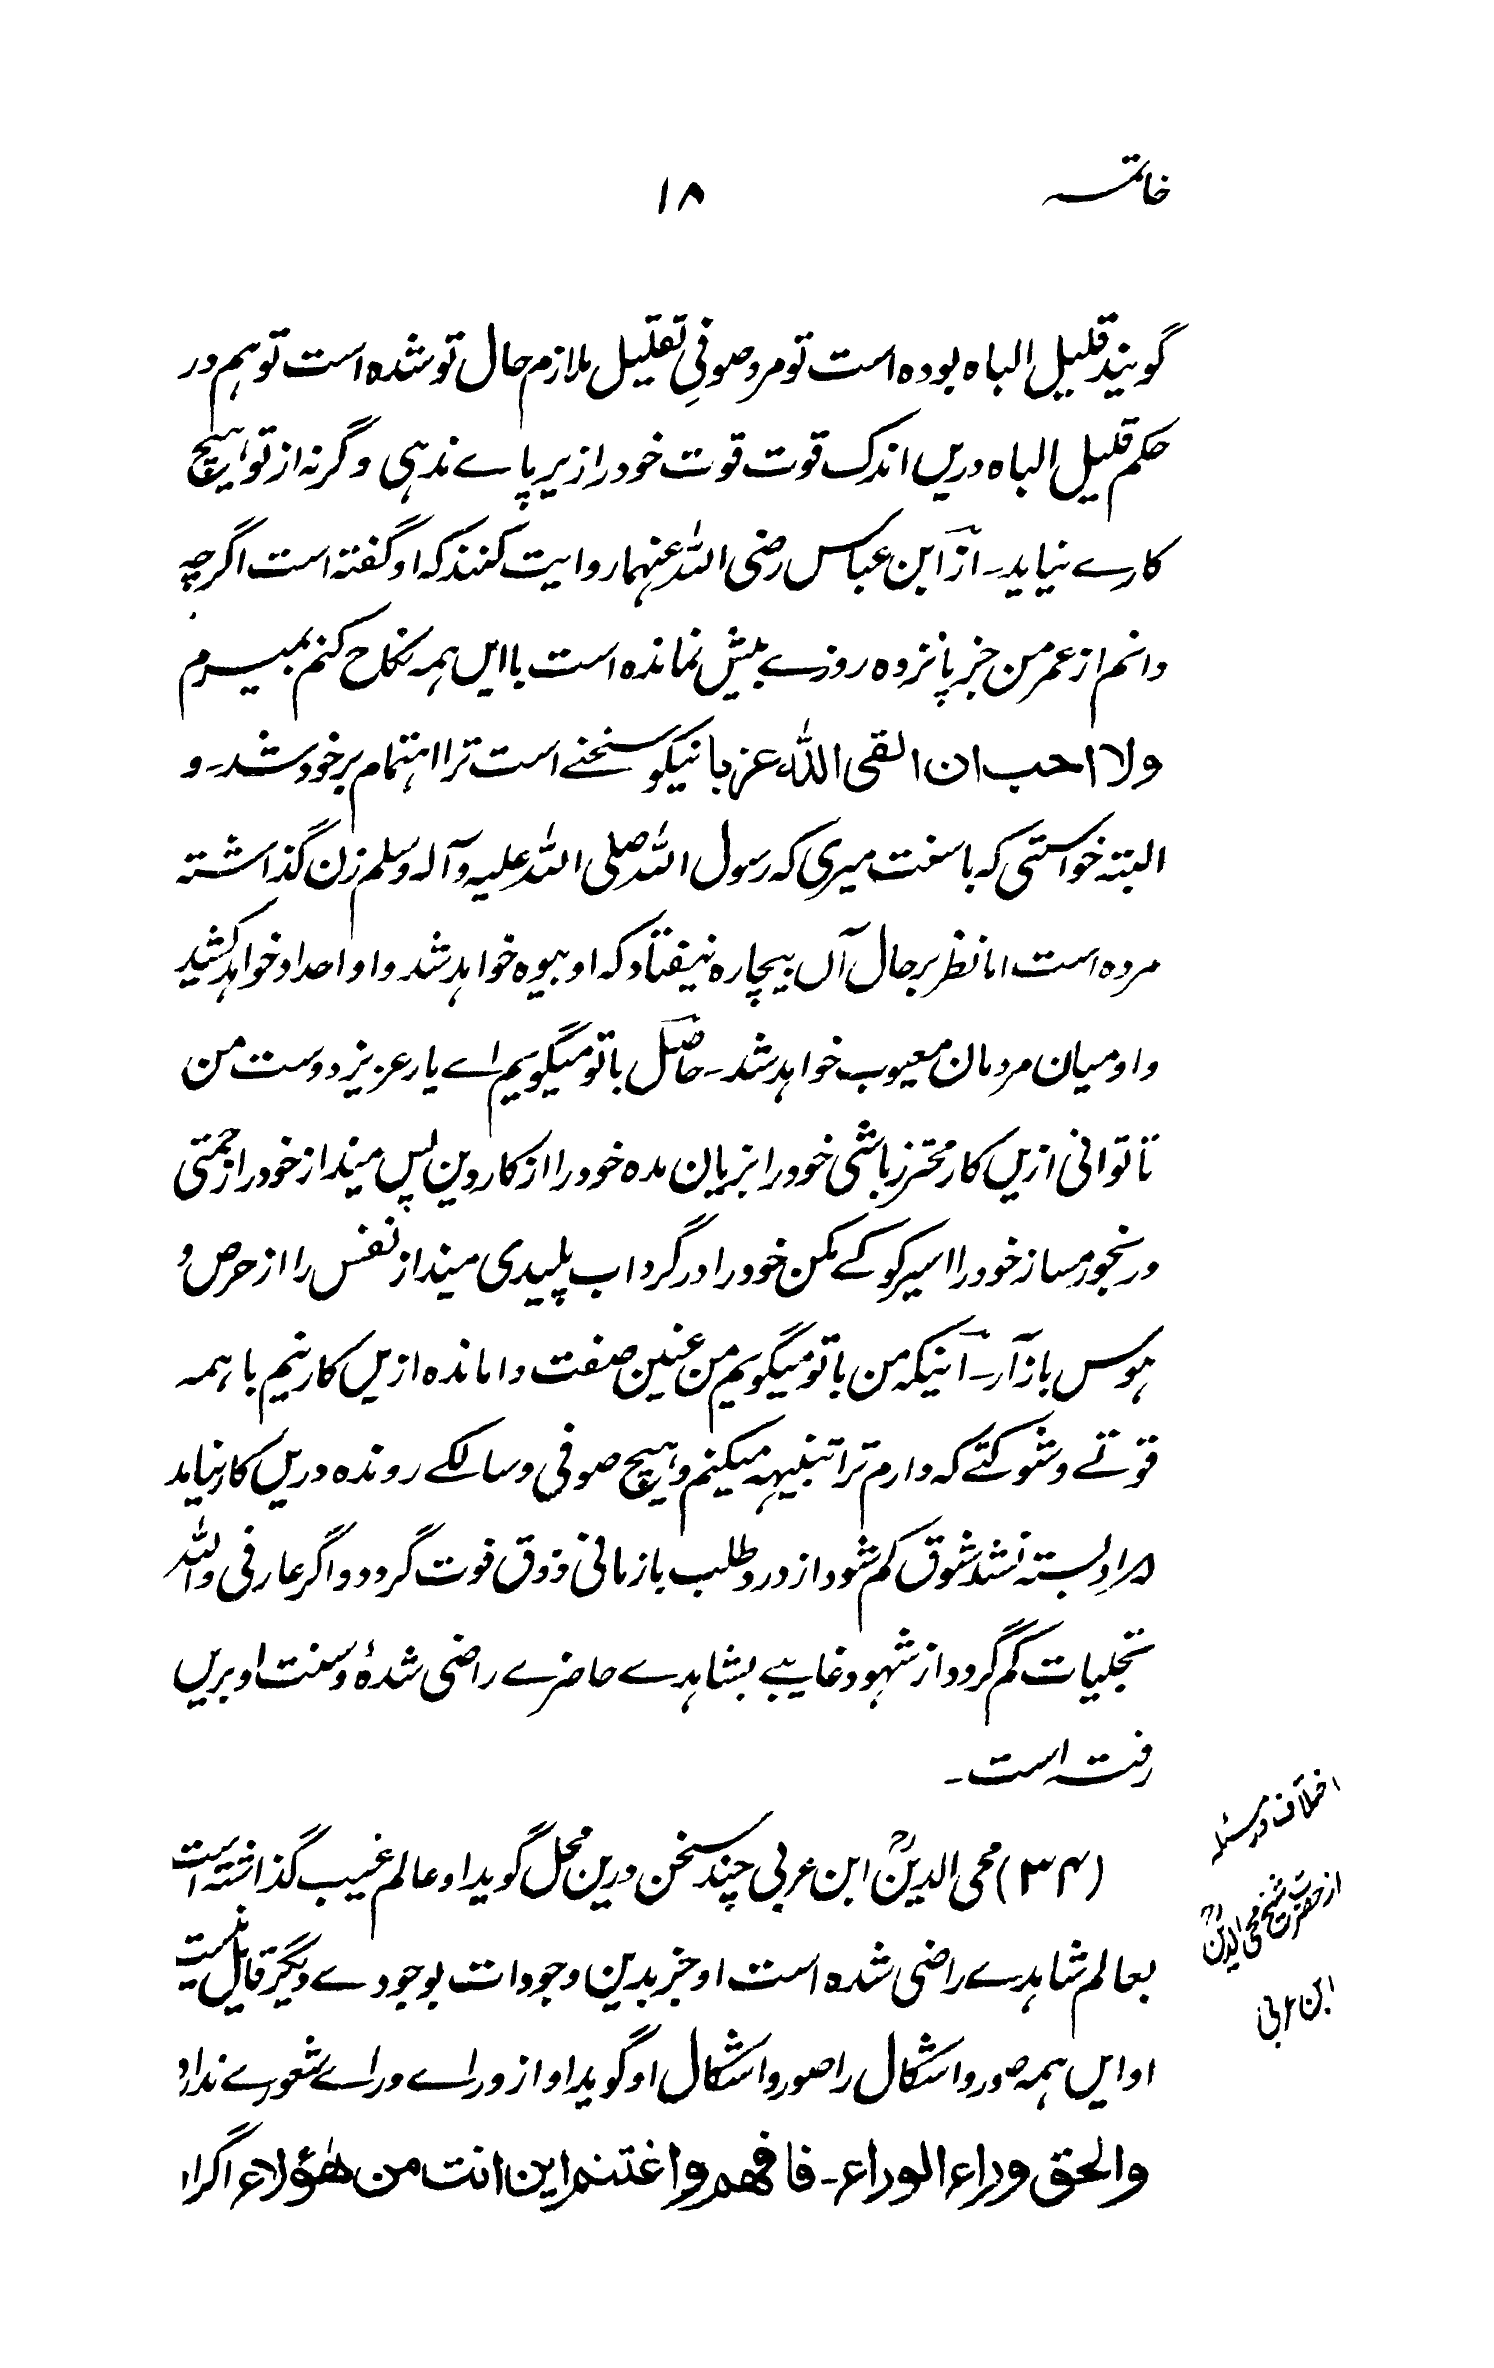 خاتمہ
۱۸
گویند قلیل الباہ بودہ است تو مرد صوفیِ تقلیل ملازم حال تو شدہ است تو ہم در
حکم قلیل الباہ دریں اندک قوت قوت خود را زیر پاے ندہی وگرنہ از تو ہیچ
کارے نیاید۔ از ابن عباس رضی اللہ عنہما روایت کنند کہ او گفتہ است اگرچہ
دانم از عمر من جز پانزدہ روزے بیش نماندہ است با ایں ہمہ نکاح کنم بمیرم
ولا احب ان القی اللہ عزبا نیکو سخنے است ترا اہتمام بر خود شد۔ و
البتہ خواستی کہ با سنت میری کہ رسول اللہ صلی اللہ علیہ وآلہ وسلم زن گذاشتہ
مردہ است اما نظر بر حال آں بیچارہ نیفتاد کہ او بیوہ خواہد شد و او احداد خواہد کشید
و او میان مردمان معیوب خواہد شد۔ حاصل با تو میگویم اے یار عزیز دوست من
تا توانی ازیں کار محترز باشی خود را بزیان مدہ خود را از کار دین پس مینداز خود را زحمتی
و رنجور مساز خود را اسیر کوکے مکن خود را در گرداب پلیدی مینداز نفس را از حرص و
ہوس باز آر۔ آنیکہ من با تو میگویم من عنین صفت و اماندہ ازیں کار نیم با ہمہ
قوتے و شوکتے کہ دارم ترا تنبیہہ میکنم و ہیچ صوفی و سالکے روندہ دریں کار نیاید
مرا دبستہ نشد شوق کم شود از درد طلب باز مانی ذوق فوت گردد و اگر عارفی واللہ
تجلیات گم گردد از شہود غایبے بشاہدے حاضرے راضی شدۂ و سنت او بریں
رفتہ است۔
(۳۴) محی الدینؒ ابن عربی چند سخن درین محل گوید او عالم غیب گذاشتہ است
بعالم شاہدے راضی شدہ است او جز بدین وجودات بوجودے دیگر قایل نیست
او ایں ہمہ صور و اشکال را صور و اشکال او گوید او از وراے وراے شعورے ندارد
والحق وراء الوراء۔ فافهم واغتنم این انت من هؤلاء اگر او
اختلاف در مسئلہ
از حضرت شیخ محی الدینؒ
ابن عربی